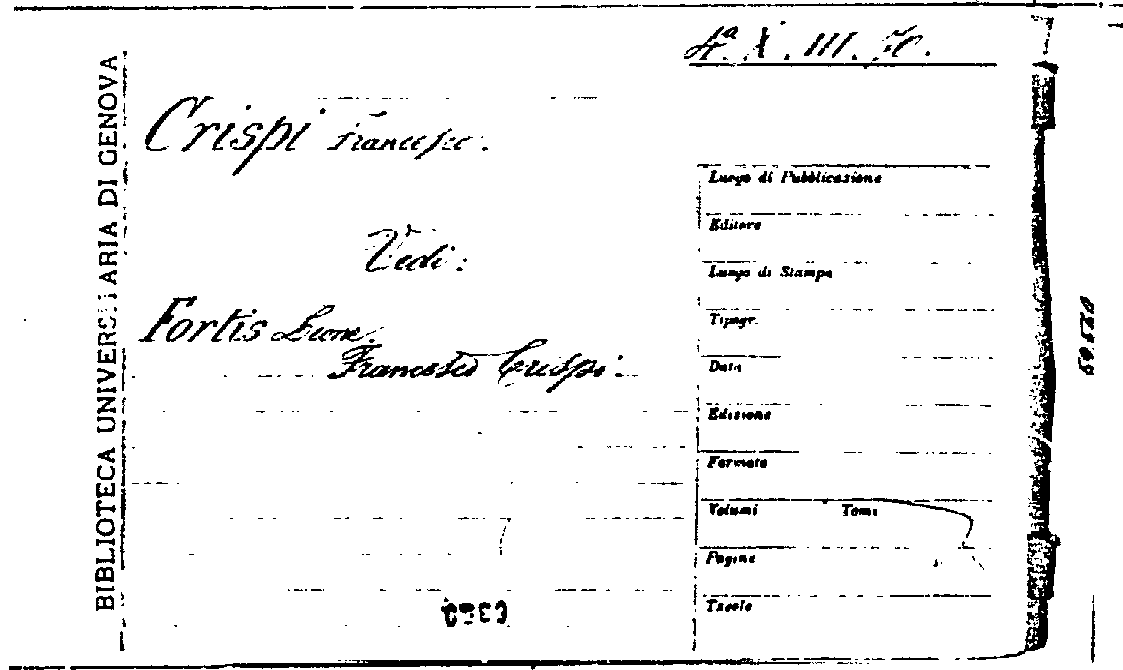 4ª X. III. 70.
BIBLIOTECA UNIVERSITARIA DI GENOVA
Crispi Francesco.
Vedi:
Fortis Leone.
Francesco Crispi.
Luogo di Pubblicazione
Editore
Luogo di Stampa
Tipogr.
Data
Edizione
Formato
Volumi Tomi
Pagine
Tavole